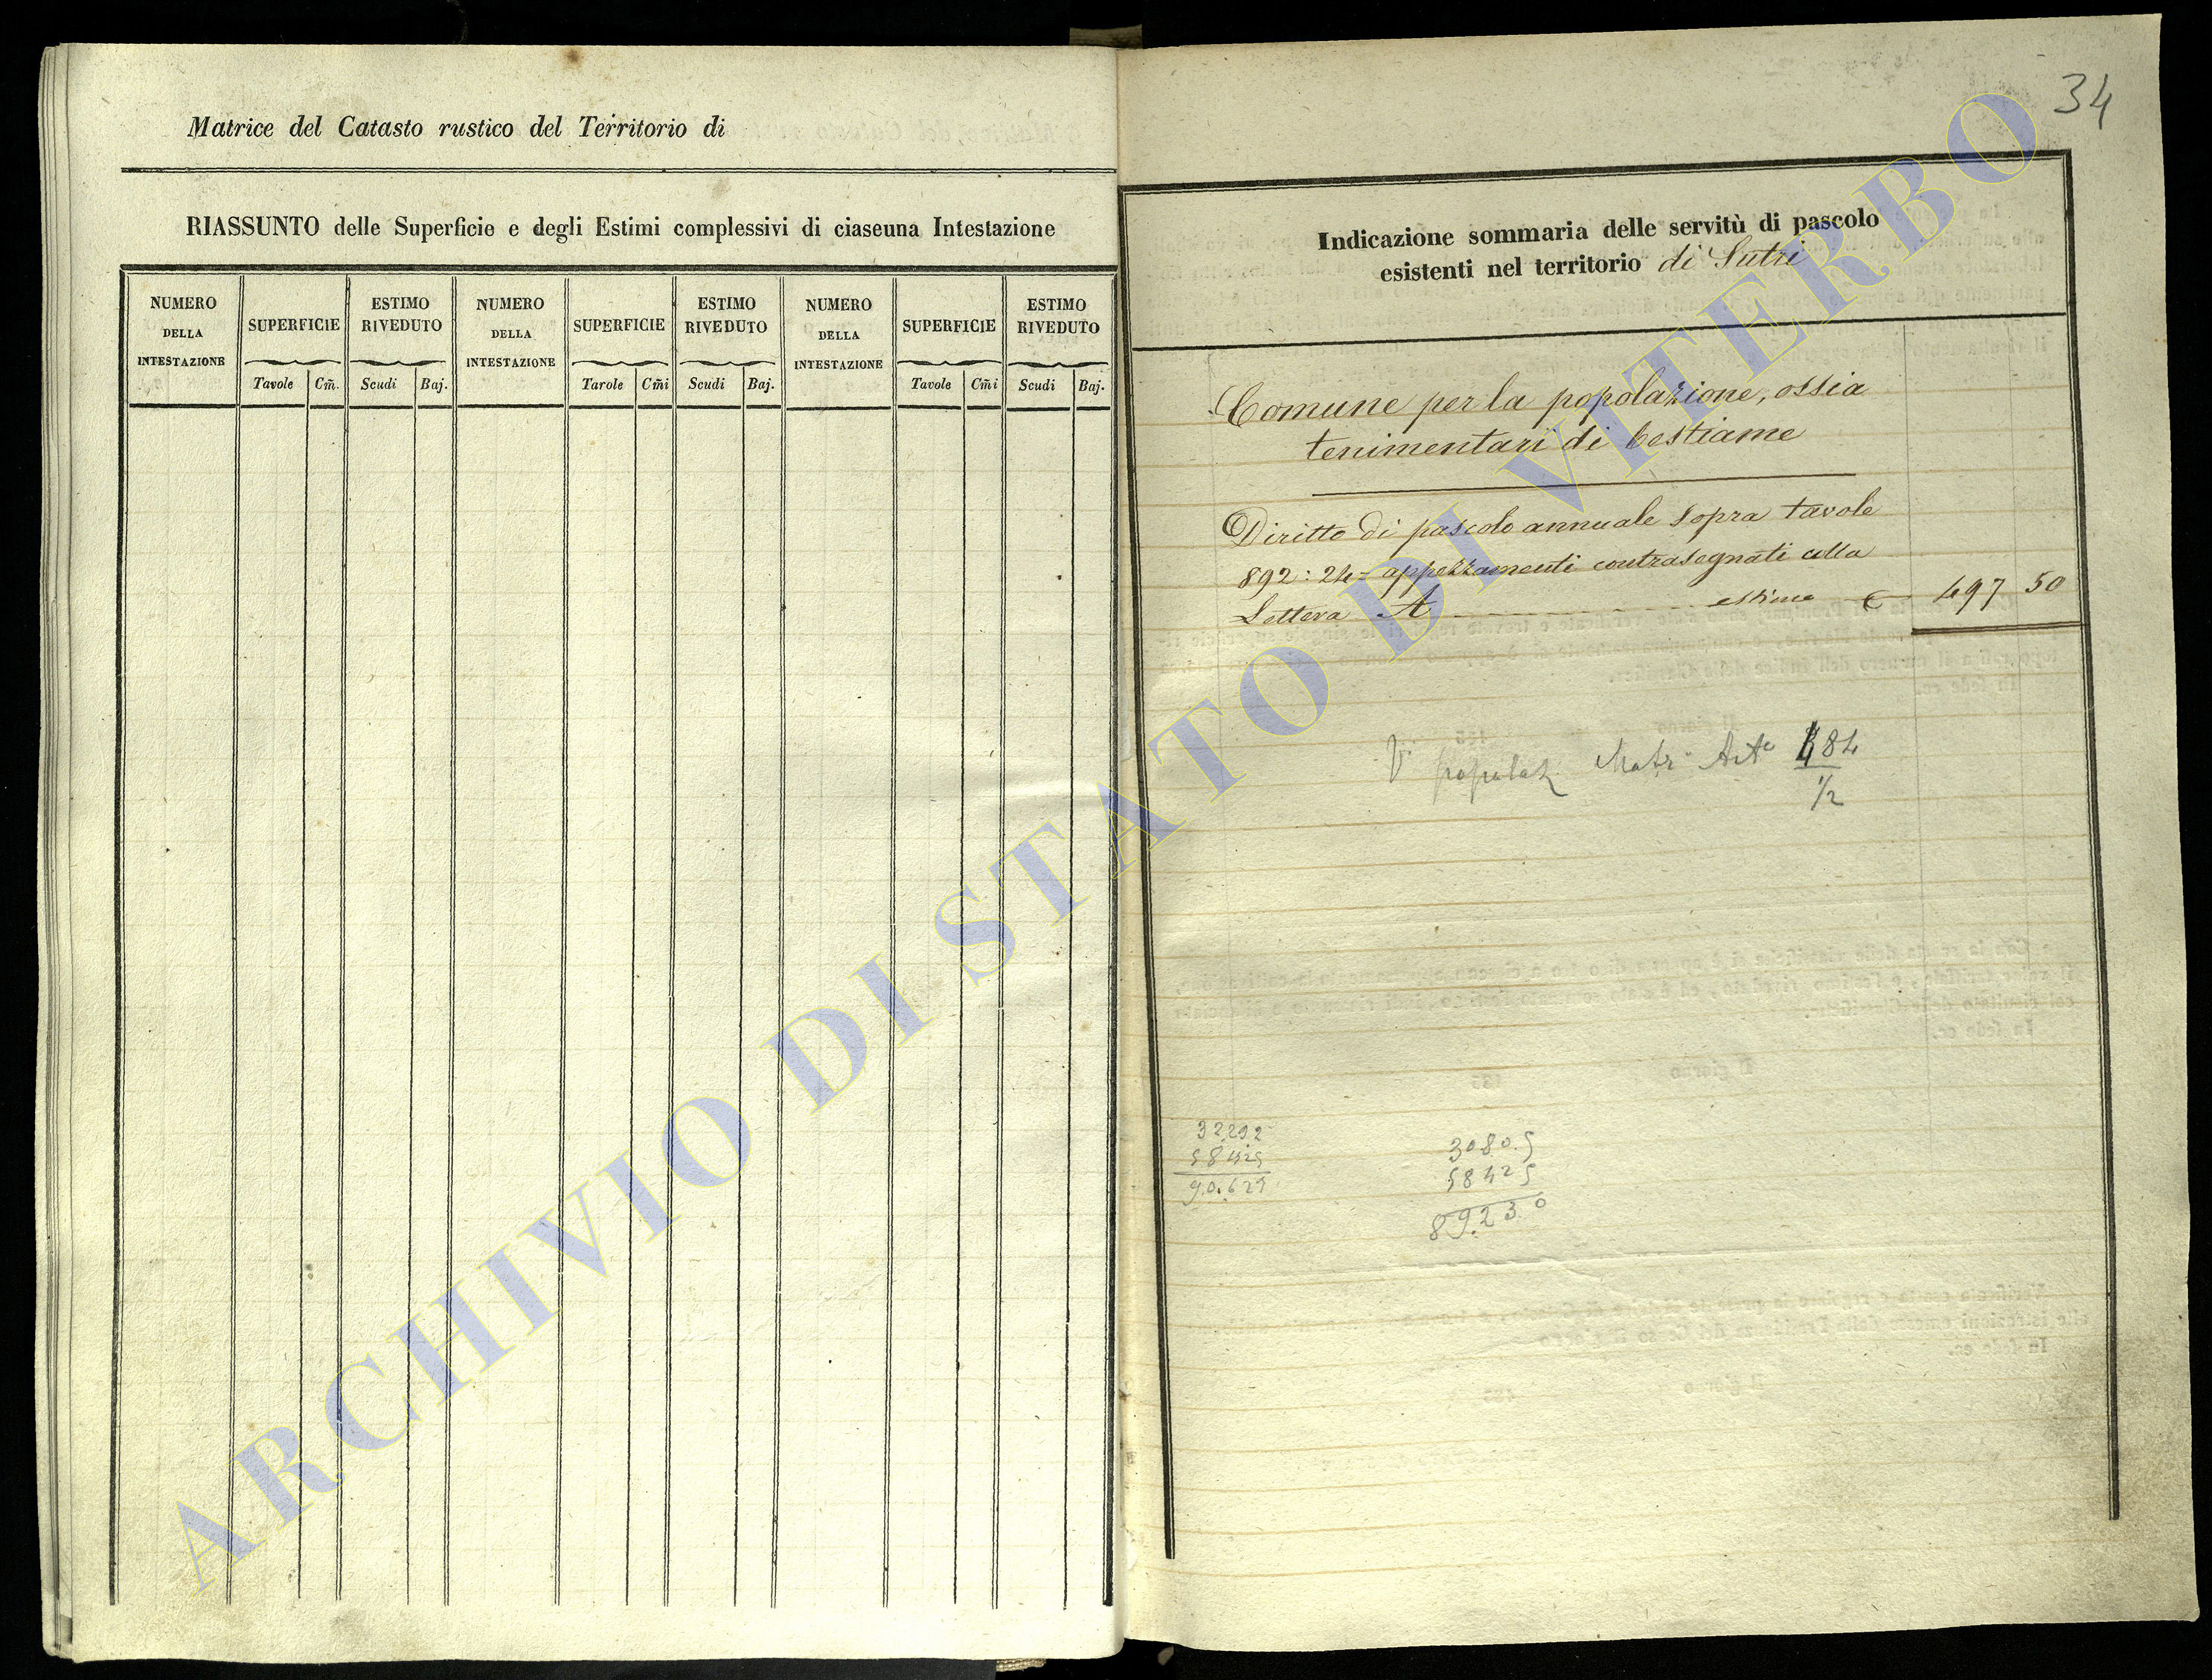 Matrice del Catasto rustico del Territorio di
RIASSUNTO delle Superficie e degli Estimi complessivi di ciaseuna Intestazione
NUMERO DELLA INTESTAZIONE SUPERFICIE ESTIMO RIVEDUTO NUMERO DELLA INTESTAZIONE SUPERFICIE ESTIMO RIVEDUTO NUMERO DELLA INTESTAZIONE SUPERFICIE ESTIMO RIVEDUTO
Tavole Cm̃. Scudi Baj. Tarole Cm̃i Scudi Baj. Tavole Cm̃i Scudi Baj.
34
Indicazione sommaria delle servitù di pascolo
esistenti nel territorio di Sutri
Comune per la popolazione, ossia
tenimentari di bestiame
Diritto di pascolo annuale sopra tavole
892:24 appezzamenti contrasegnati colla
Lettera A estimo 497 50
V. popolaz Matr. Art.
1/2
32292
58425
90.62
3080.5
58425
8923.0
ARCHIVIO DI STATO DI VITERBO